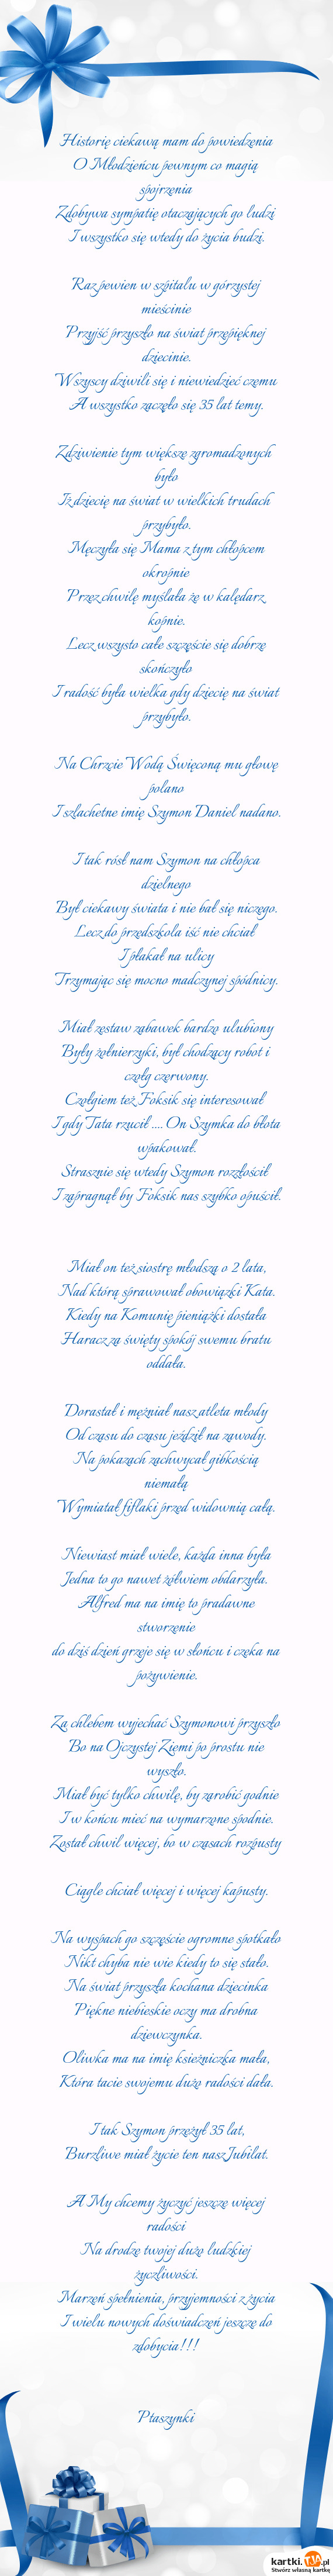 Historię ciekawą mam do powiedzenia
O Młodzieńcu pewnym co magią
spojrzenia
Zdobywa sympatię otaczających go ludzi
I wszystko się wtedy do życia budzi.

Raz pewien w szpitalu w górzystej
mieścinie
Przyjść przyszło na świat przepięknej
dziecinie.
Wszyscy dziwili się i niewiedzieć czemu
A wszystko zaczęło się 35 lat temy.

Zdziwienie tym większe zgromadzonych
było
Iż dziecię na świat w wielkich trudach
przybyło.
Męczyła się Mama z tym chłopcem
okropnie
Przez chwilę myślała że w kalędarz
kopnie.
Lecz wszysto całe szczęście się dobrze
skończyło
I radość była wielka gdy dziecię na świat
przybyło.

Na Chrzcie Wodą Święconą mu głowę
polano
I szlachetne imię Szymon Daniel nadano.

I tak rósł nam Szymon na chłopca
dzielnego
Był ciekawy świata i nie bał się niczego.
Lecz do przedszkola iść nie chciał
I płakał na ulicy
Trzymając się mocno madczynej spódnicy.

Miał zestaw zabawek bardzo ulubiony
Były żołnierzyki, był chodzący robot i
czołg czerwony.
Czołgiem też Foksik się interesował
I gdy Tata rzucił .... On Szymka do błota
wpakował.
Strasznie się wtedy Szymon rozzłościł
I zapragnął by Foksik nas szybko opuścił.

Miał on też siostrę młodszą o 2 lata,
Nad którą sprawował obowiązki Kata.
Kiedy na Komunię pieniążki dostała
Haracz za święty spokój swemu bratu
oddała.

Dorastał i mężniał nasz atleta młody
Od czasu do czasu jeździł na zawody.
Na pokazach zachwycał gibkością
niemałą
Wymiatał fiflaki przed widownią całą.

Niewiast miał wiele, każda inna była
Jedna to go nawet żółwiem obdarzyła.
Alfred ma na imię to pradawne
stworzenie
do dziś dzień grzeje się w słońcu i czeka na
pożywienie.

Za chlebem wyjechać Szymonowi przyszło
Bo na Ojczystej Ziemi po prostu nie
wyszło.
Miał być tylko chwilę, by zarobić godnie
I w końcu mieć na wymarzone spodnie.
Został chwil więcej, bo w czasach rozpusty

Ciągle chciał więcej i więcej kapusty.

Na wyspach go szczęście ogromne spotkało
Nikt chyba nie wie kiedy to się stało.
Na świat przyszła kochana dziecinka
Piękne niebieskie oczy ma drobna
dziewczynka.
Oliwka ma na imię księżniczka mała,
Która tacie swojemu dużo radości dała.

I tak Szymon przeżył 35 lat,
Burzliwe miał życie ten nasz Jubilat.

A My chcemy życzyć jeszcze więcej
radości
Na drodze twojej dużo ludzkiej
życzliwości.
Marzeń spełnienia, przyjemności z życia
I wielu nowych doświadczeń jeszcze do
zdobycia!!!

Ptaszynki
kartki.TJA.pl
Stwórz własną kartkę